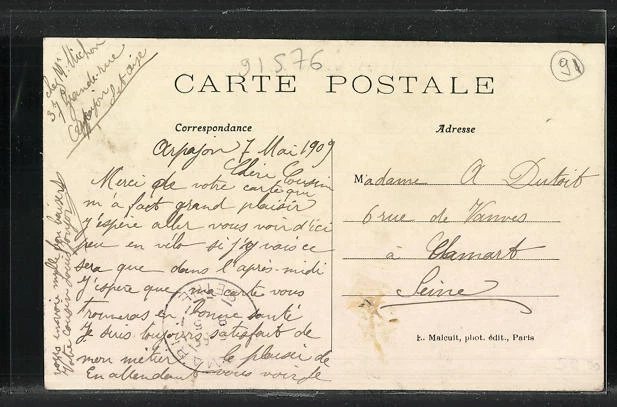 91576
91
chez Mr Michon
37 Grande rue
Arpajon
S et Oise
CARTE POSTALE
Correspondance
Adresse
Arpajon 7 Mai 1909
Chère Cousin
Merci de votre carte qui
m'a fait grand plaisir
j'espère aller vous voir d'ici
peu en vélo si j'y vais ce
sera que dans l'après-midi
J'espère que ma carte vous
trouveras en bonne santé
Je suis toujours satisfait de
mon métier
En attendant le plaisir de
vous voir je
vous envoie mille bons baisers
Votre cousin
Madame A Dutoit
6 rue de Vanves
à Clamart
Seine
E. Malcuit, phot. édit., Paris